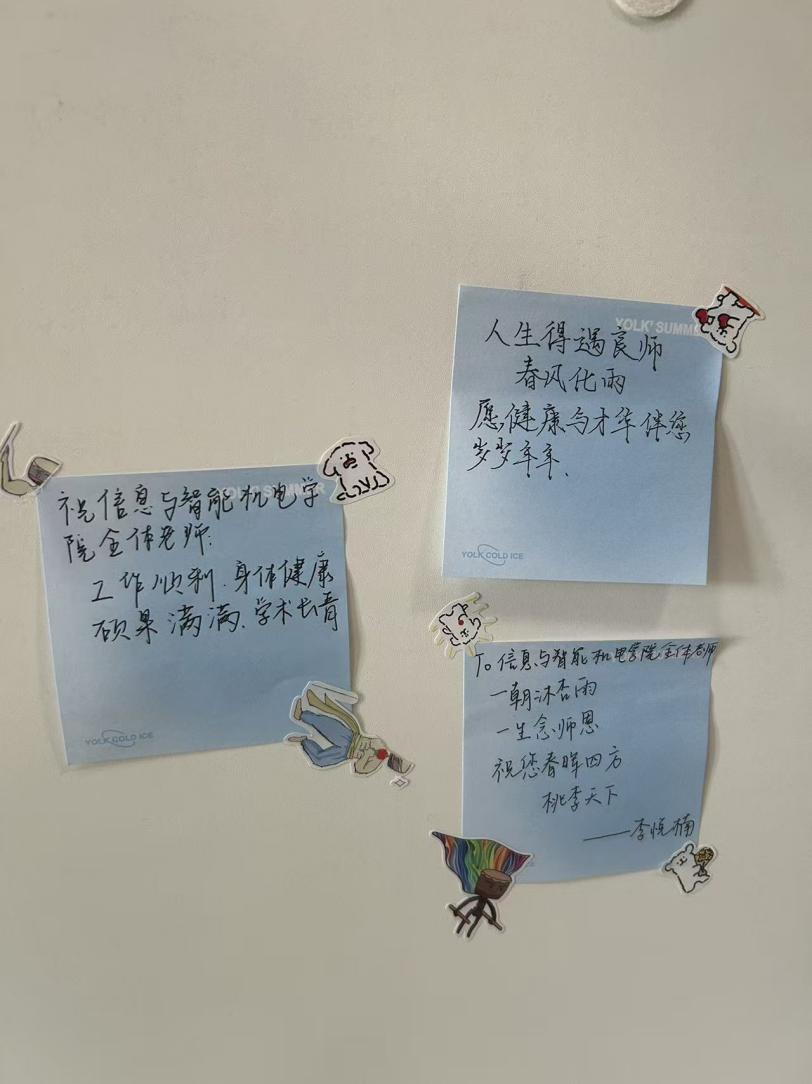 祝信息与智能机电学
院全体老师:
工作顺利.身体健康
硕果满满.学术长青
YOLK COLD ICE
YOLK' SUMM
人生得遇良师
春风化雨
愿健康与才华伴您
岁岁年年.
YOLK COLD ICE
To 信息与智能机电学院全体老师
一朝沐杏雨
一生念师恩
祝您春晖四方
桃李天下
——李悦楠